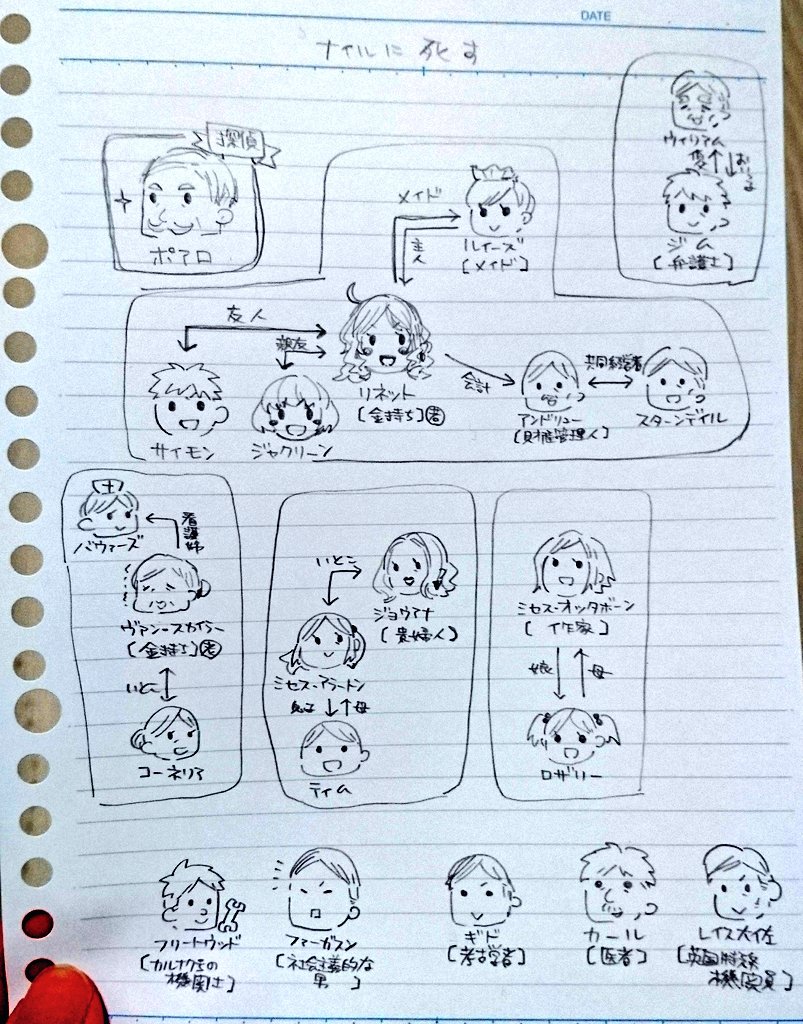 DATE
ナイルに死す
探偵
ポアロ
メイド
主人
ルイーズ
[メイド]
ウィリアム
おい
ジム
[弁護士]
友人
親友
サイモン
ジャクリーン
リネット
[金持ち]
会計
アンドリュー
[財産管理人]
共同経営者
スターンデイル
バウァーズ
看護婦
ヴァン=スカイラー
[金持ち]
いとこ
コーネリア
いとこ
ジョウアナ
[貴婦人]
ミセス・アラートン
息子
母
ティム
ミセス・オッタボーン
[作家]
娘
母
ロザリー
フリートウッド
[カルナク号の
機関士]
ファーガスン
[社会主義的な
男]
ギド
[考古学者]
カール
[医者]
レイス大佐
[英国特務
機関員]